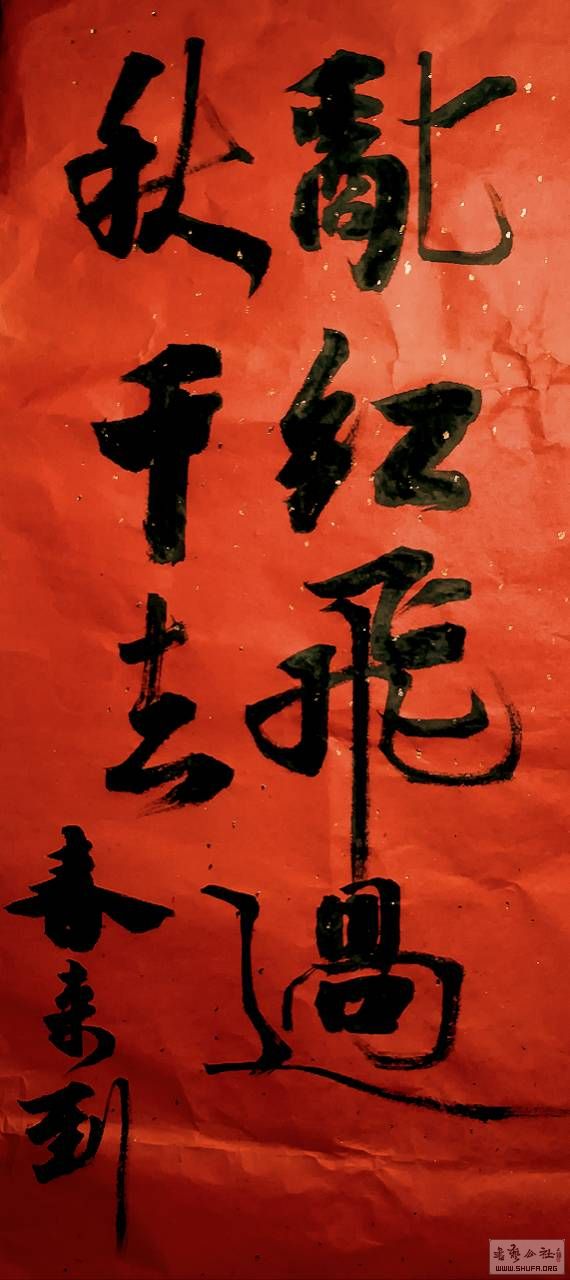 亂紅飛過
秋千去
春来到
WWW.SHUFA.ORG